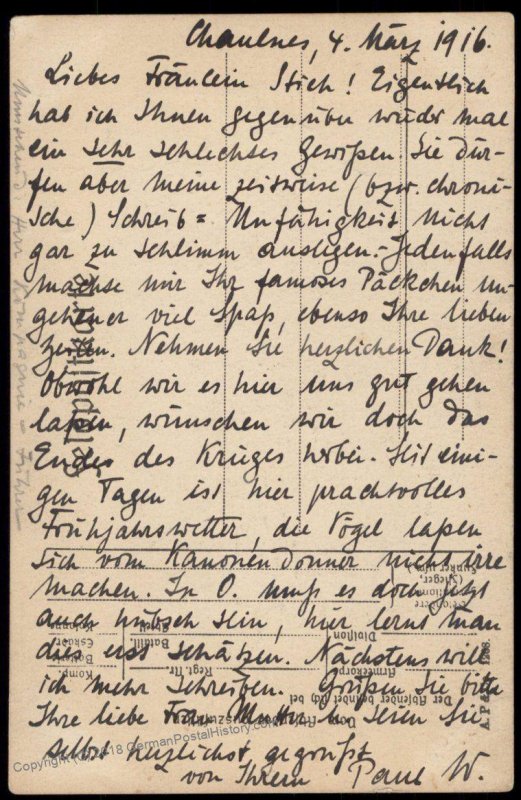 Chaulnes, 4. März 1916.
Liebes Fräulein Stich! Eigentlich
hab ich Ihnen gegenüber wieder mal
ein sehr schlechtes Gewißen. Sie dür-
fen aber meine zeitweise (bzw. chroni-
sche) Schreib = Unfähigkeit nicht
gar zu schlimm auslegen. - Jedenfalls
machte mir Ihr famoses Päckchen un-
geheuer viel Spaß, ebenso Ihre lieben
Zeilen. Nehmen Sie herzlichen Dank!
Obwohl wir es hier uns gut gehen
laßen, wünschen wir doch das
Ende des Krieges herbei. Seit eini-
gen Tagen ist hier prachtvolles
Frühjahrswetter, die Vögel laßen
sich vom Kanonendonner nicht irre
machen. In O. muß es doch jetzt
auch hübsch sein, hier lernt man
dies erst schätzen. Nächstens will
ich mehr schreiben. Grüßen Sie bitte
Ihre liebe Frau Mutter u. seien Sie
selbst herzlichst gegrüßt
von Ihrem Paul W.
Umstehend: Herr Kompagnie = Führer
Feldpostkarte
Der Absender befindet sich bei
Armeekorps
Division
Regt. Nr.
Batail.
Komp.
Batterie
Eskadr.
Kolonne
Copyright (C) 2018 GermanPostalHistory.com